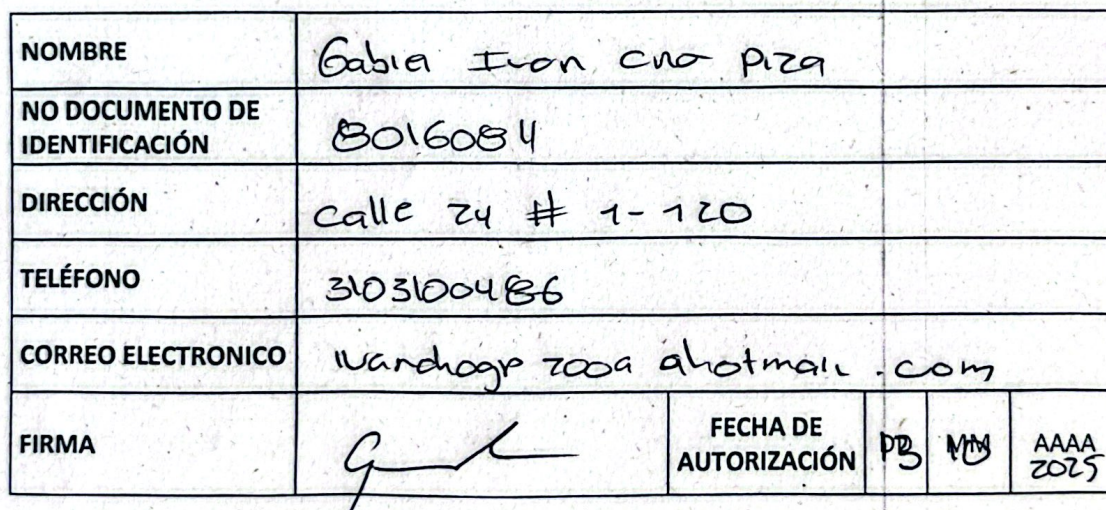 NOMBRE Gabiel Ivan cno Piza
NO DOCUMENTO DE
IDENTIFICACIÓN 8016084
DIRECCIÓN calle 24 # 1-120
TELÉFONO 3103100486
CORREO ELECTRONICO .com
FIRMA FECHA DE
AUTORIZACIÓN DD MM AAAA
2025